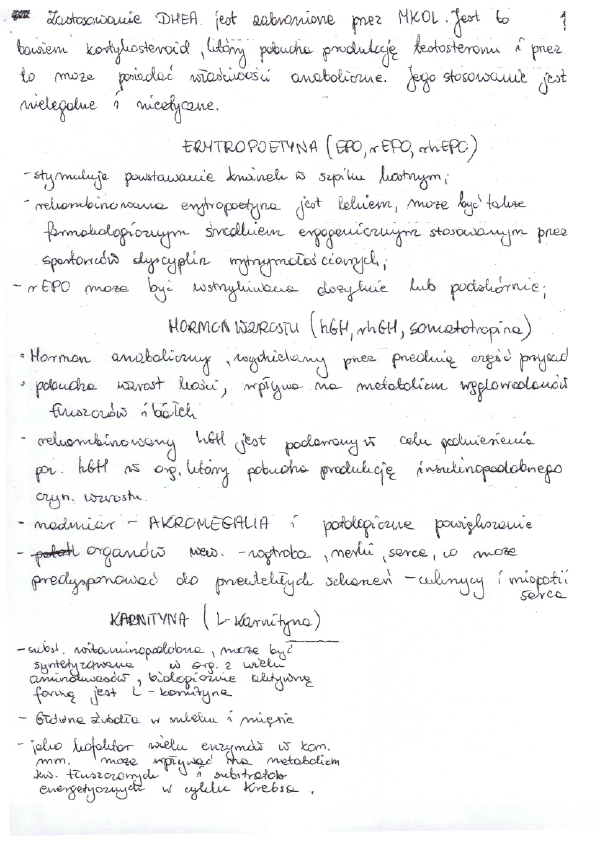 Zastosowanie DHEA jest zabronione przez MKOL. Jest to 1
bowiem kortykosteroid, który pobudza produkcję testosteronu i przez
to może posiadać właściwości anaboliczne. Jego stosowanie jest
nielegalne i nieetyczne.
ERYTROPOETYNA (EPO, rEPO, rhEPO)
- stymuluje powstawanie krwinek w szpiku kostnym;
- rekombinowana erytropoetyna jest lekiem, może być także
farmakologicznym środkiem ergogenicznym stosowanym przez
sportowców dyscyplin wytrzymałościowych;
- rEPO może być wstrzykiwana dożylnie lub podskórnie;
HORMON WZROSTU (hGH, rhGH, somatotropina)
• Hormon anaboliczny, wydzielany przez przednią część przysad
• pobudza wzrost kości, wpływa na metabolizm węglowodanów
tłuszczów i białek
- rekombinowany hGH jest podawany w celu podniesienia
poz. hGH w org. który pobudza produkcję insulinopodobnego
czyn. wzrostu.
- nadmiar - AKROMEGALIA i patologiczne powiększenie
- organów wew. - wątroba, nerki, serce, co może
predysponować do przewlekłych schorzeń - cukrzycy i miopatii
serca
KARNITYNA (L-Karnityna)
- subst. witaminopodobna, może być
syntetyzowana w org. z wielu
aminokwasów, biologicznie aktywną
formą jest L-karnityna
- Główne źródła w mleku i mięsie
- jako kofaktor wielu enzymów w kom.
mm. może wpływać na metabolizm
kw. tłuszczowych i substratów
energetycznych w cyklu Krebsa.